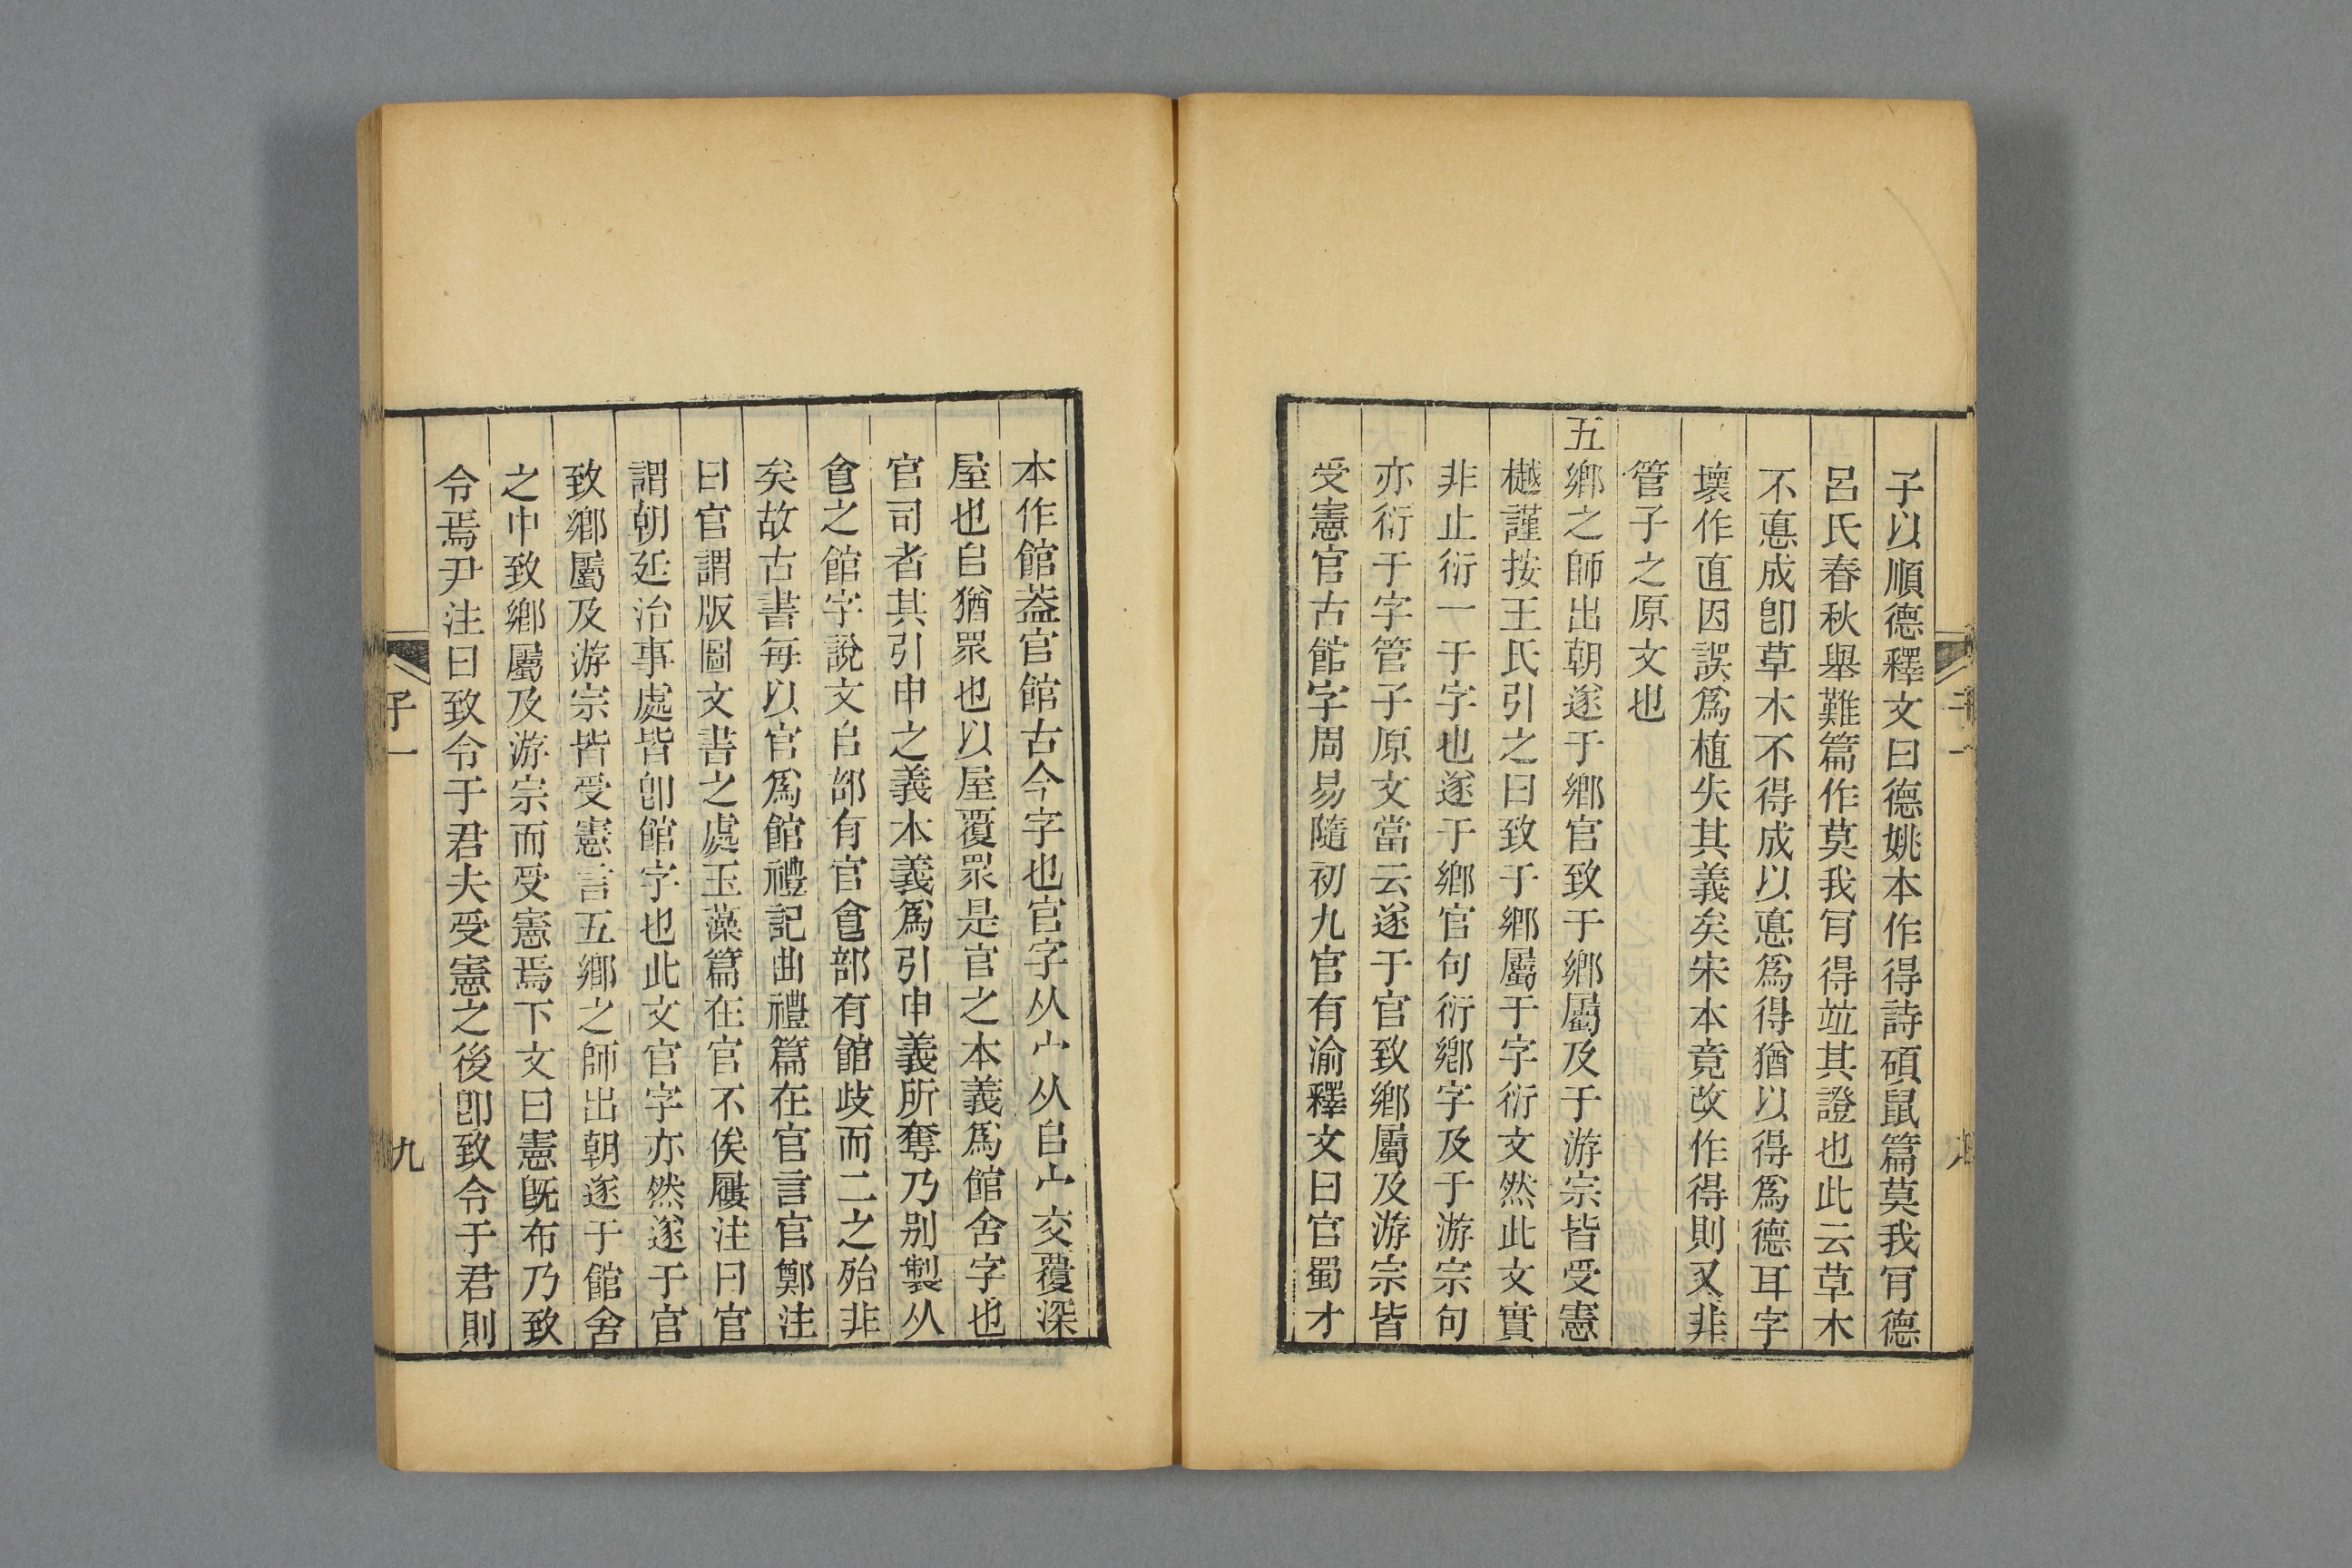 子以順德釋文曰德姚本作得詩碩鼠篇莫我肎德
呂氏春秋舉難篇作莫我肎得竝其證也此云草木
不悳成卽草木不得成以悳爲得猶以得爲德耳字
壞作直因誤爲植失其義矣宋本竟改作得則又非
管子之原文也
五鄉之師出朝遂于鄉官致于鄉屬及于游宗皆受憲
樾謹按王氏引之曰致于鄉屬于字衍文然此文實
非止衍一于字也遂于鄉官句衍鄉字及于游宗句
亦衍于字管子原文當云遂于官致鄉屬及游宗皆
受憲官古館字周易隨初九官有渝釋文曰官蜀才
本作館葢官館古今字也官字从宀从𠂤宀交覆深
屋也𠂤猶眾也以屋覆眾是官之本義爲館舍字也
官司者其引申之義本義爲引申義所奪乃别製从
𠊊之館字說文𠂤部有官𠊊部有館歧而二之殆非
矣故古書每以官爲館禮記曲禮篇在官言官鄭注
曰官謂版圖文書之處玉藻篇在官不俟屨注曰官
謂朝廷治事處皆卽館字也此文官字亦然遂于官
致鄉屬及游宗皆受憲言五鄉之師出朝遂于館舍
之中致鄉屬及游宗而受憲焉下文曰憲旣布乃致
令焉尹注曰致令于君夫受憲之後卽致令于君則
子一
九